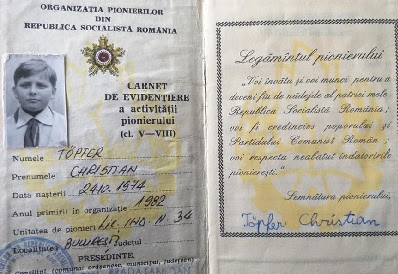 ORGANIZAȚIA PIONIERILOR
DIN
REPUBLICA SOCIALISTĂ ROMÂNIA
CARNET
DE EVIDENȚIERE
a activității
pionierului
(cl. V—VIII)
Numele TÖPFER
Prenumele CHRISTIAN
Data nașterii 24.10.1974
Anul primirii în organizație 1982
Unitatea de pionieri LIC. IND. N. 34
Localitatea BUCUREȘTI Județul
PREȘEDINTE
Consiliul (comunal, orășenesc, municipal, județean)
Legămîntul pionierului
"Voi învăța și voi munci pentru a
deveni fiu de nădejde al patriei mele
Republica Socialistă România;
voi fi credincios poporului și
Partidului Comunist Român;
voi respecta neabătut îndatoririle
pionierești."
Semnătura pionierului,
Töpfer Christian